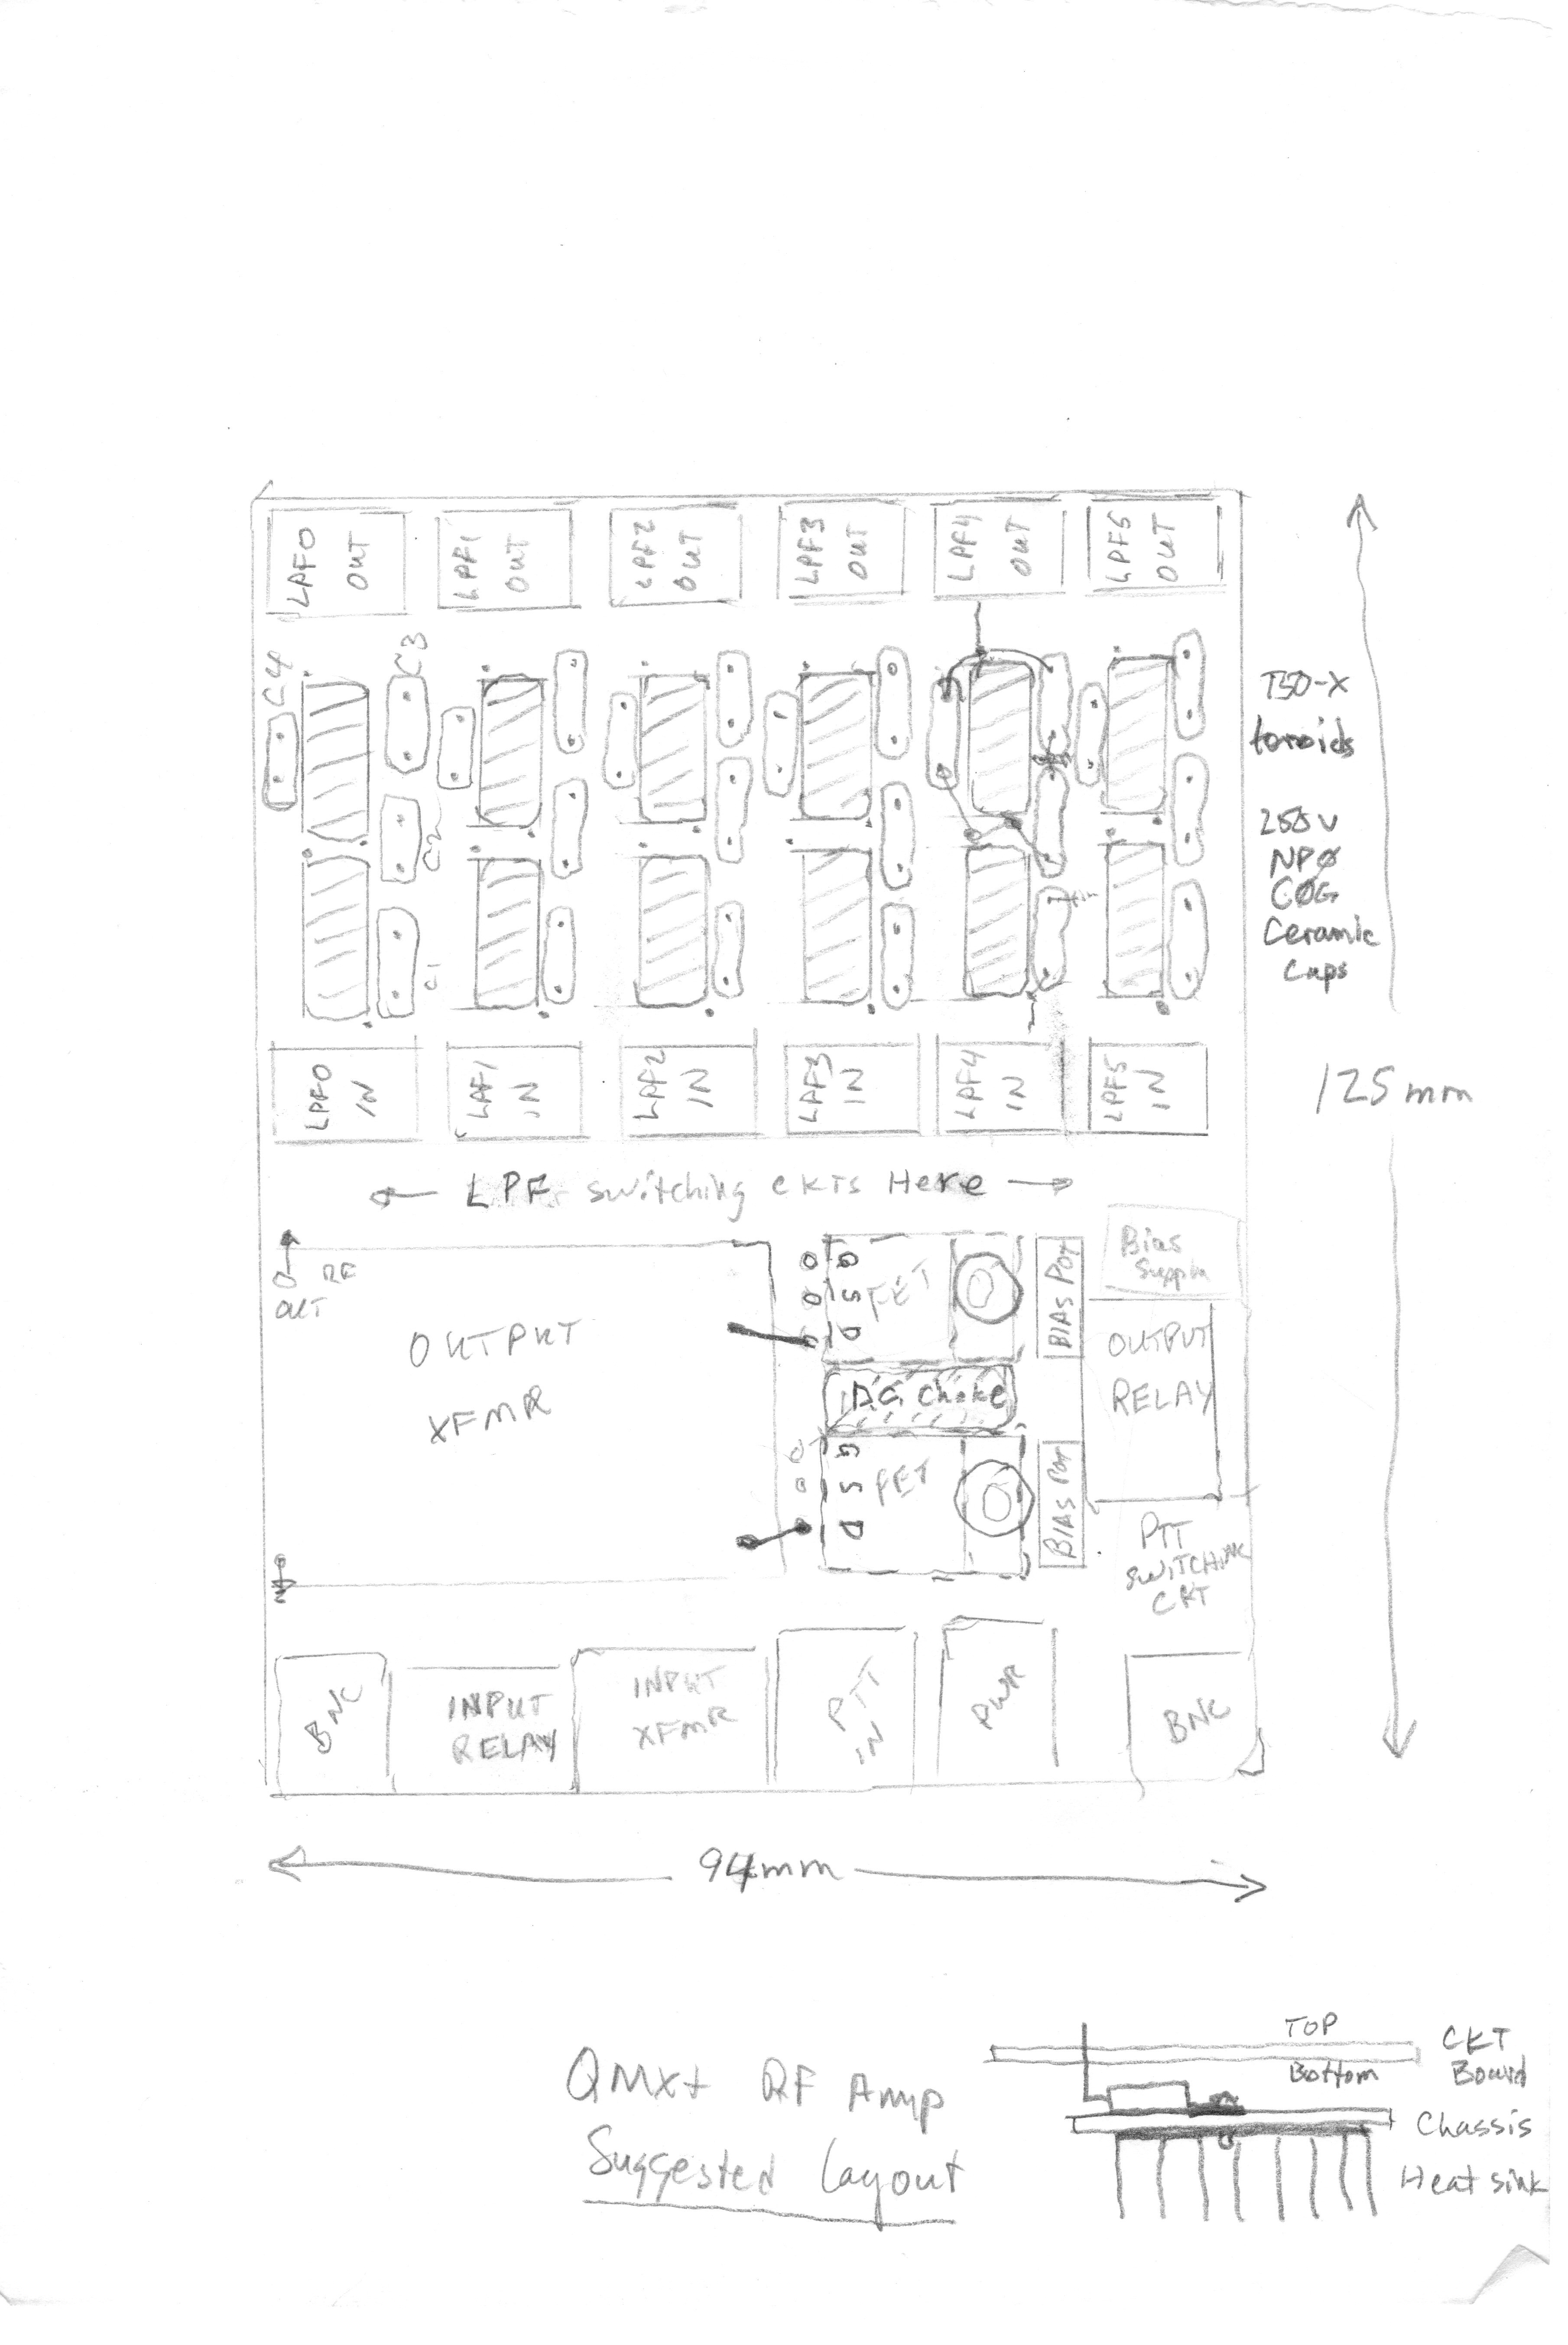 LPF0 OUT
LPF1 OUT
LPF2 OUT
LPF3 OUT
LPF4 OUT
LPF5 OUT
C4
C3
C2
C1
T50-X
toroids
250v
NPØ
CØG
Ceramic
Caps
LPF0 IN
LPF1 IN
LPF2 IN
LPF3 IN
LPF4 IN
LPF5 IN
125mm
← LPF switching CKTS Here →
RF
OUT
OUTPUT
XFMR
G
S
D
FET
BIAS POT
Bias
Supply
D.C. Choke
OUTPUT
RELAY
G
S
D
FET
BIAS POT
PTT
SWITCHING
CKT
BNC
INPUT
RELAY
INPUT
XFMR
PTT
IN
PWR
BNC
94mm
QMX+ RF Amp
Suggested Layout
TOP
Bottom
CKT
Board
Chassis
Heat sink